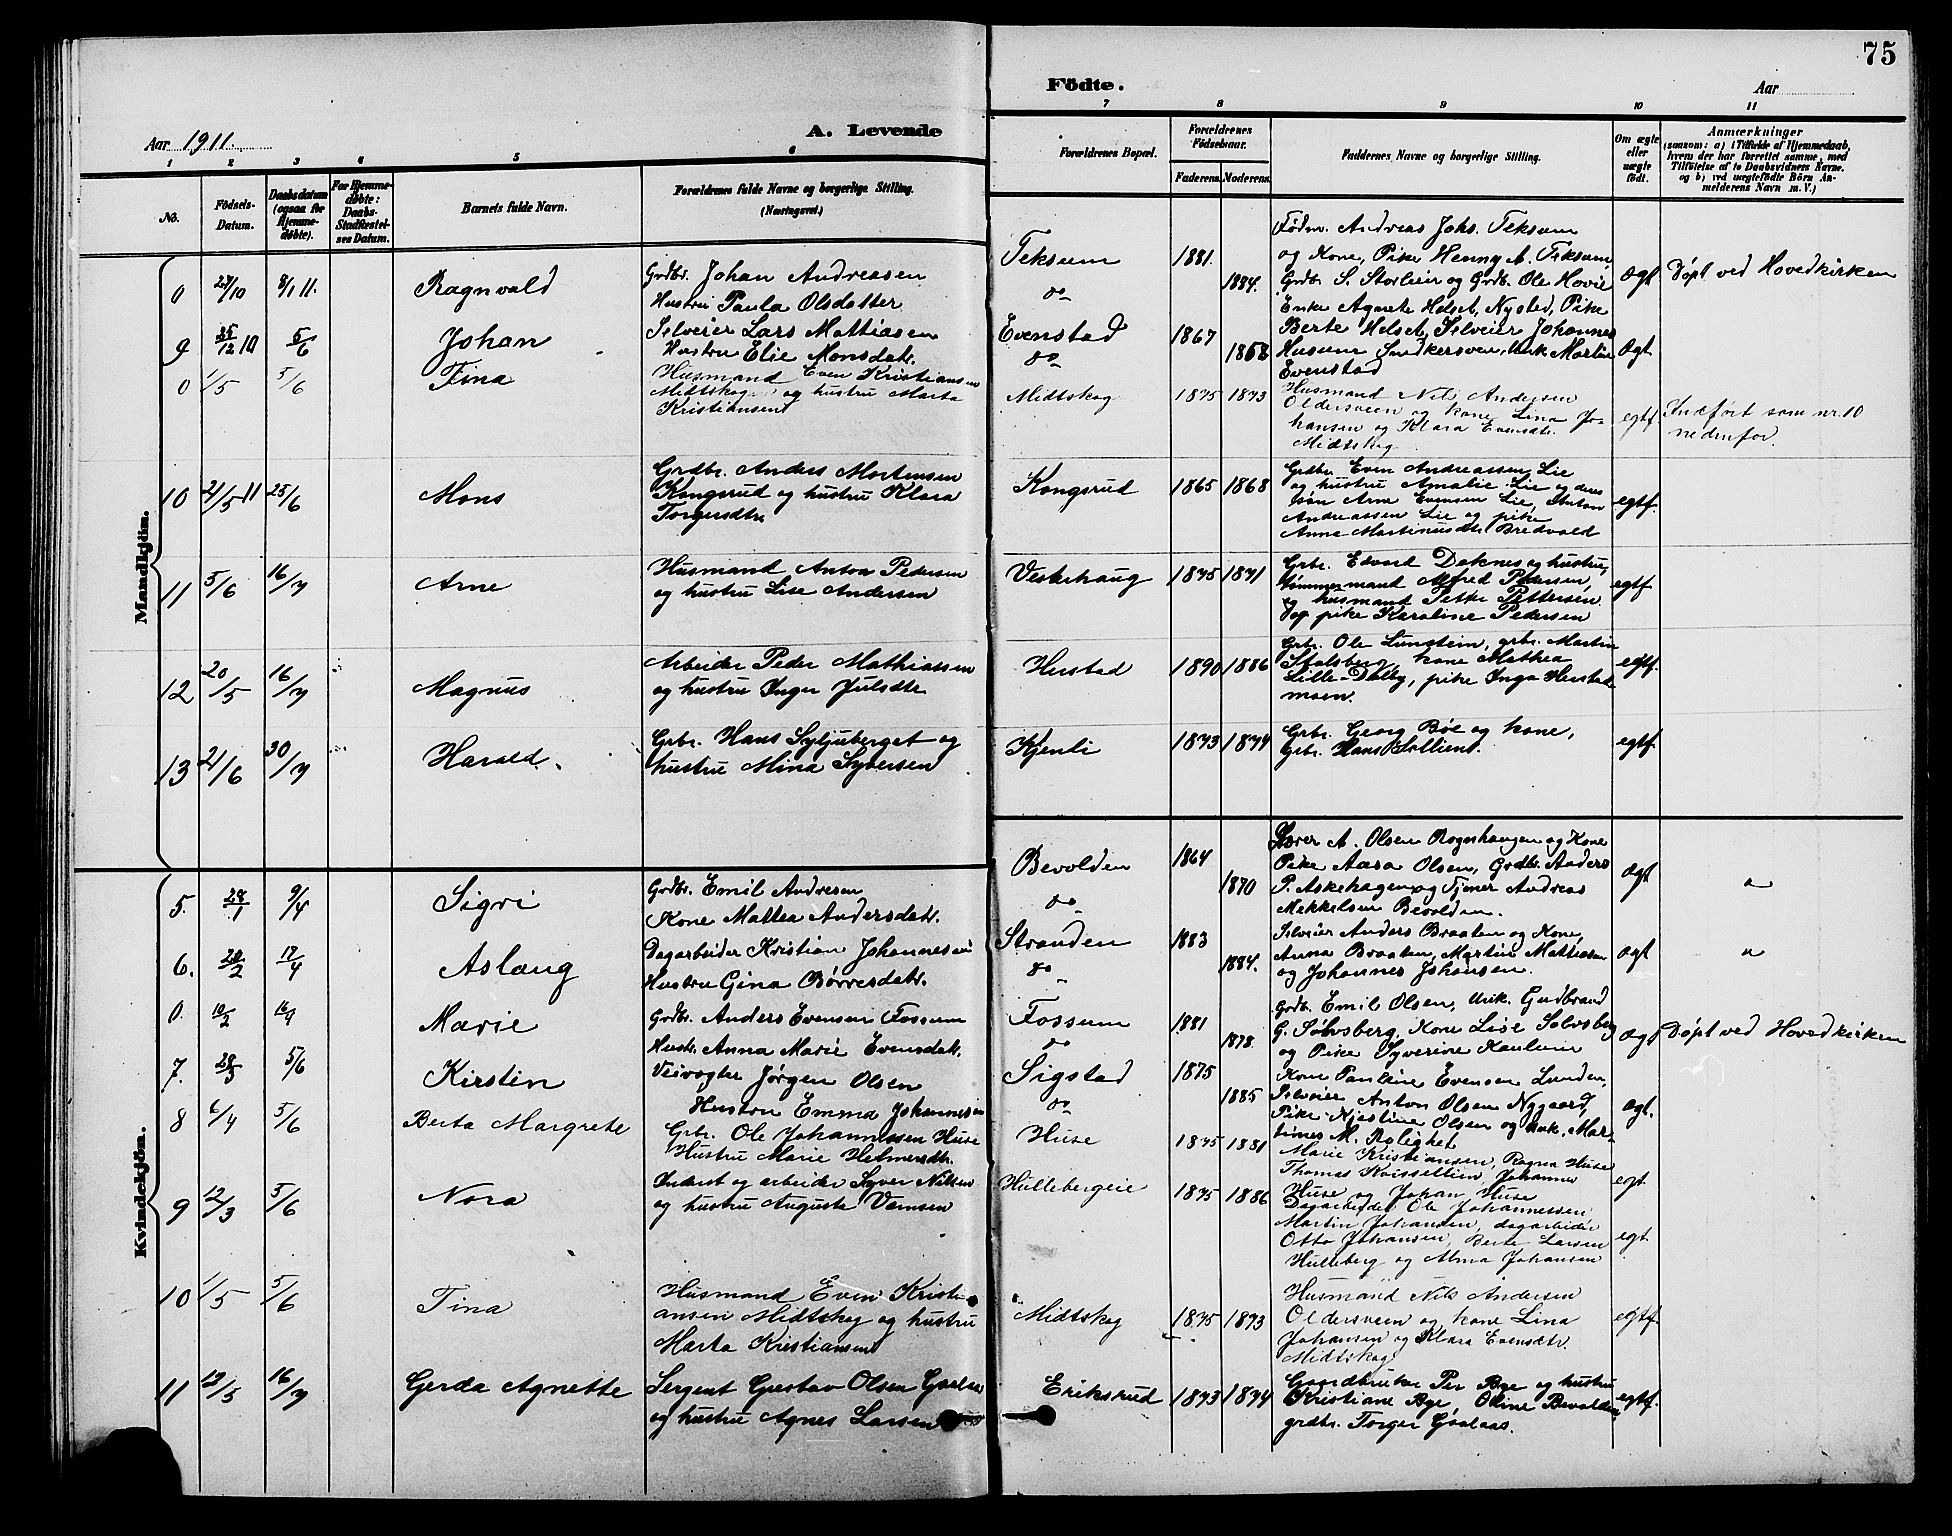 75
Födte.
Aar
Aar 1911.
A. Levende
1 2 3 4 5 6
7 8 9 10 11
No.
Fødsels-Datum.
Daabsdatum (ogsaa for Hjemmedøbte).
For Hjemmedøbte: Daabs-Stadfæstelses Datum.
Barnets fulde Navn.
Forældrenes fulde Navne og borgerlige Stilling.
(Næringsvei.)
Forældrenes Bopæl.
Forældrenes Fødselsaar.
Faderens. Moderens.
Faddernes Navne og borgerlige Stilling.
Om ægte eller uægte født.
Anmærkninger
(saasom: a) i Tilfælde af Hjemmedaab, hvem der har forrettet samme, med Tilføielse af to Daabsvidners Navne, og b) ved uægtefødte Børn Anmelderens Navn m. V.)
Mandkjön.
0 27/10 8/1 11. Ragnvald
Grdbr. Johan Andreasen
Hustru Paula Olsdatter
Teksum
do
1881. 1884.
Fødm. Andreas Johs. Teksum
og Kone, Pike Henny A. Teksum,
Grdb. S. Storlien og Grdb. Ole Hovie
Ægt
Døpt ved Hovedkirken
9 25/12 10 5/6 Johan
Selveier Lars Mattiasen
Hustru Elie Monsdatr.
Evenstad
do
1867 1868
Enke Agnete Helset, Nysted, Pike
Berte Helset, Selveier Johannes
Husum Snedkersven, Unk. Martin
Evenstad
Ægt
0 1/5 5/6 Tina
Husmand Even Kristiansen
Midtskog og hustru Marta
Kristiansen
Midtskog
1875 1873
Husmand Nils Andersen
Oldersveen og kone Lina Jo-
hansen og Klara Evensdtr.
Midtskog
egtf.
Indført som nr. 10
nedenfor.
10 21/5 11 25/6 Mons
Grdbr. Anders Mortensen
Kongsrud og hustru Klara
Torgersdtr.
Kongsrud
1865 1868
Grdbr. Even Andreassen Lie
og hustru Amalie Lie og deres
søn Arne Evensen Lie, Anton
Andreassen Lie og pike
Anna Martinusdtr. Bredvold
egtf.
11 5/6 16/7 Arne
Husmand Anton Pedersen
og hustru Lise Andersen
Vestehaug
1875 1871
Grbr. Edvard Doknes og hustru,
tømmermand Alfred Pedersen,
og husmand Petter Pettersen
og pike Karoline Pedersen
egtf.
12 20/5 16/7 Magnus
Arbeider Peder Mathiassen
og hustru Inger Julsdtr.
Herstad
1890 1886
Grbr. Ole Lunstein, grbr. Martin
Stalsberg, kone Mathea
Lille-Dalby, pike Inga Herstad
moen.
egtf.
13 21/6 30/7 Harald.
Grbr. Hans Syljuberget og
hustru Mina Syversen
Kjenli
1873 1874
Grbr. Georg Bøe og kone,
Grbr. Hans Sollien.
egtf.
Kvindekjön.
5. 28/1 9/4 Sigri
Grdbr. Emil Andresen
Kone Mattea Andersdatr.
Bevolden
do
1864 1870
Lærer A. Olsen Rognhaugen og Kone
Pike Aasa Olsen, Grdbr. Anders
P. Askehagen og Tjener Andreas
Mekkelsen Bevolden.
Ægt
"
6. 20/2 17/4 Aslaug
Dagarbeider Kristian Johannesen
Hustru Gina Børresdatr.
Stranden
do
1883 1884.
Selveier Anders Braaten og Kone,
Anna Braaten, Martin Mattiasen
og Johannes Johansen.
Ægt
"
0. 10/2 16/4 Marie
Grdbr. Anders Evensen Fossum
Hustr. Anna Marie Evensdatr.
Fossum
do
1881 1878.
Grdbr. Emil Olsen, Unk. Gudbrand
G. Sølvsberg, Kone Lise Solvsberg
og Pike Syverine Kaulum
Ægt
Døpt ved Hovedkirken
7. 28/3 5/6 Kirstin
Veivogter Jørgen Olsen
Hustru Emma Johannesen
Sigstad
do
1875 1885
Kone Pauline Evensen Lunden,
Selveier Anton Olsen Nygaard,
Pike Kjestine Olsen og Unk. Mar-
tines M. Rolighet
Ægt.
8 6/4 5/6 Berta Margrete
Grbr. Ole Johannessen Huse
Hustru Marie Helmersdtr.
Huse
1875 1881
Marie Kristiansen, Ragna Huse
Thomas Kvissellien, Johanne
Huse og Johan Huse
egt.
9 12/3 5/6 Nora
Inderst og arbeider Syver Nilsen
og hustru Auguste Vamsen
Hullebergeie
1875 1886
Dagarbeider Ole Johannessen
Martin Johansen, dagarbeider
Otto Johansen, Berte Larsen
Hulleberg og Alma Johansen
egt.
10 1/5 5/6 Tina
Husmand Even Kristi-
ansen Midtskog og hustru
Marta Kristiansen
Midtskog
1875 1873
Husmand Nils Andersen
Oldersveen og kone Lina
Johansen og Klara Evensdtr.
Midtskog
egtf.
11 12/5 16/7 Gerda Agnette
Sergent Gustav Olsen Gaalaas
og hustru Agnes Larsen
Erikstrud
1873 1874
Gaardbruker Per Bye og hustru
Kristiane Bye, Oline Bevolden,
grdbr. Torger Gaalaas.
egtf.